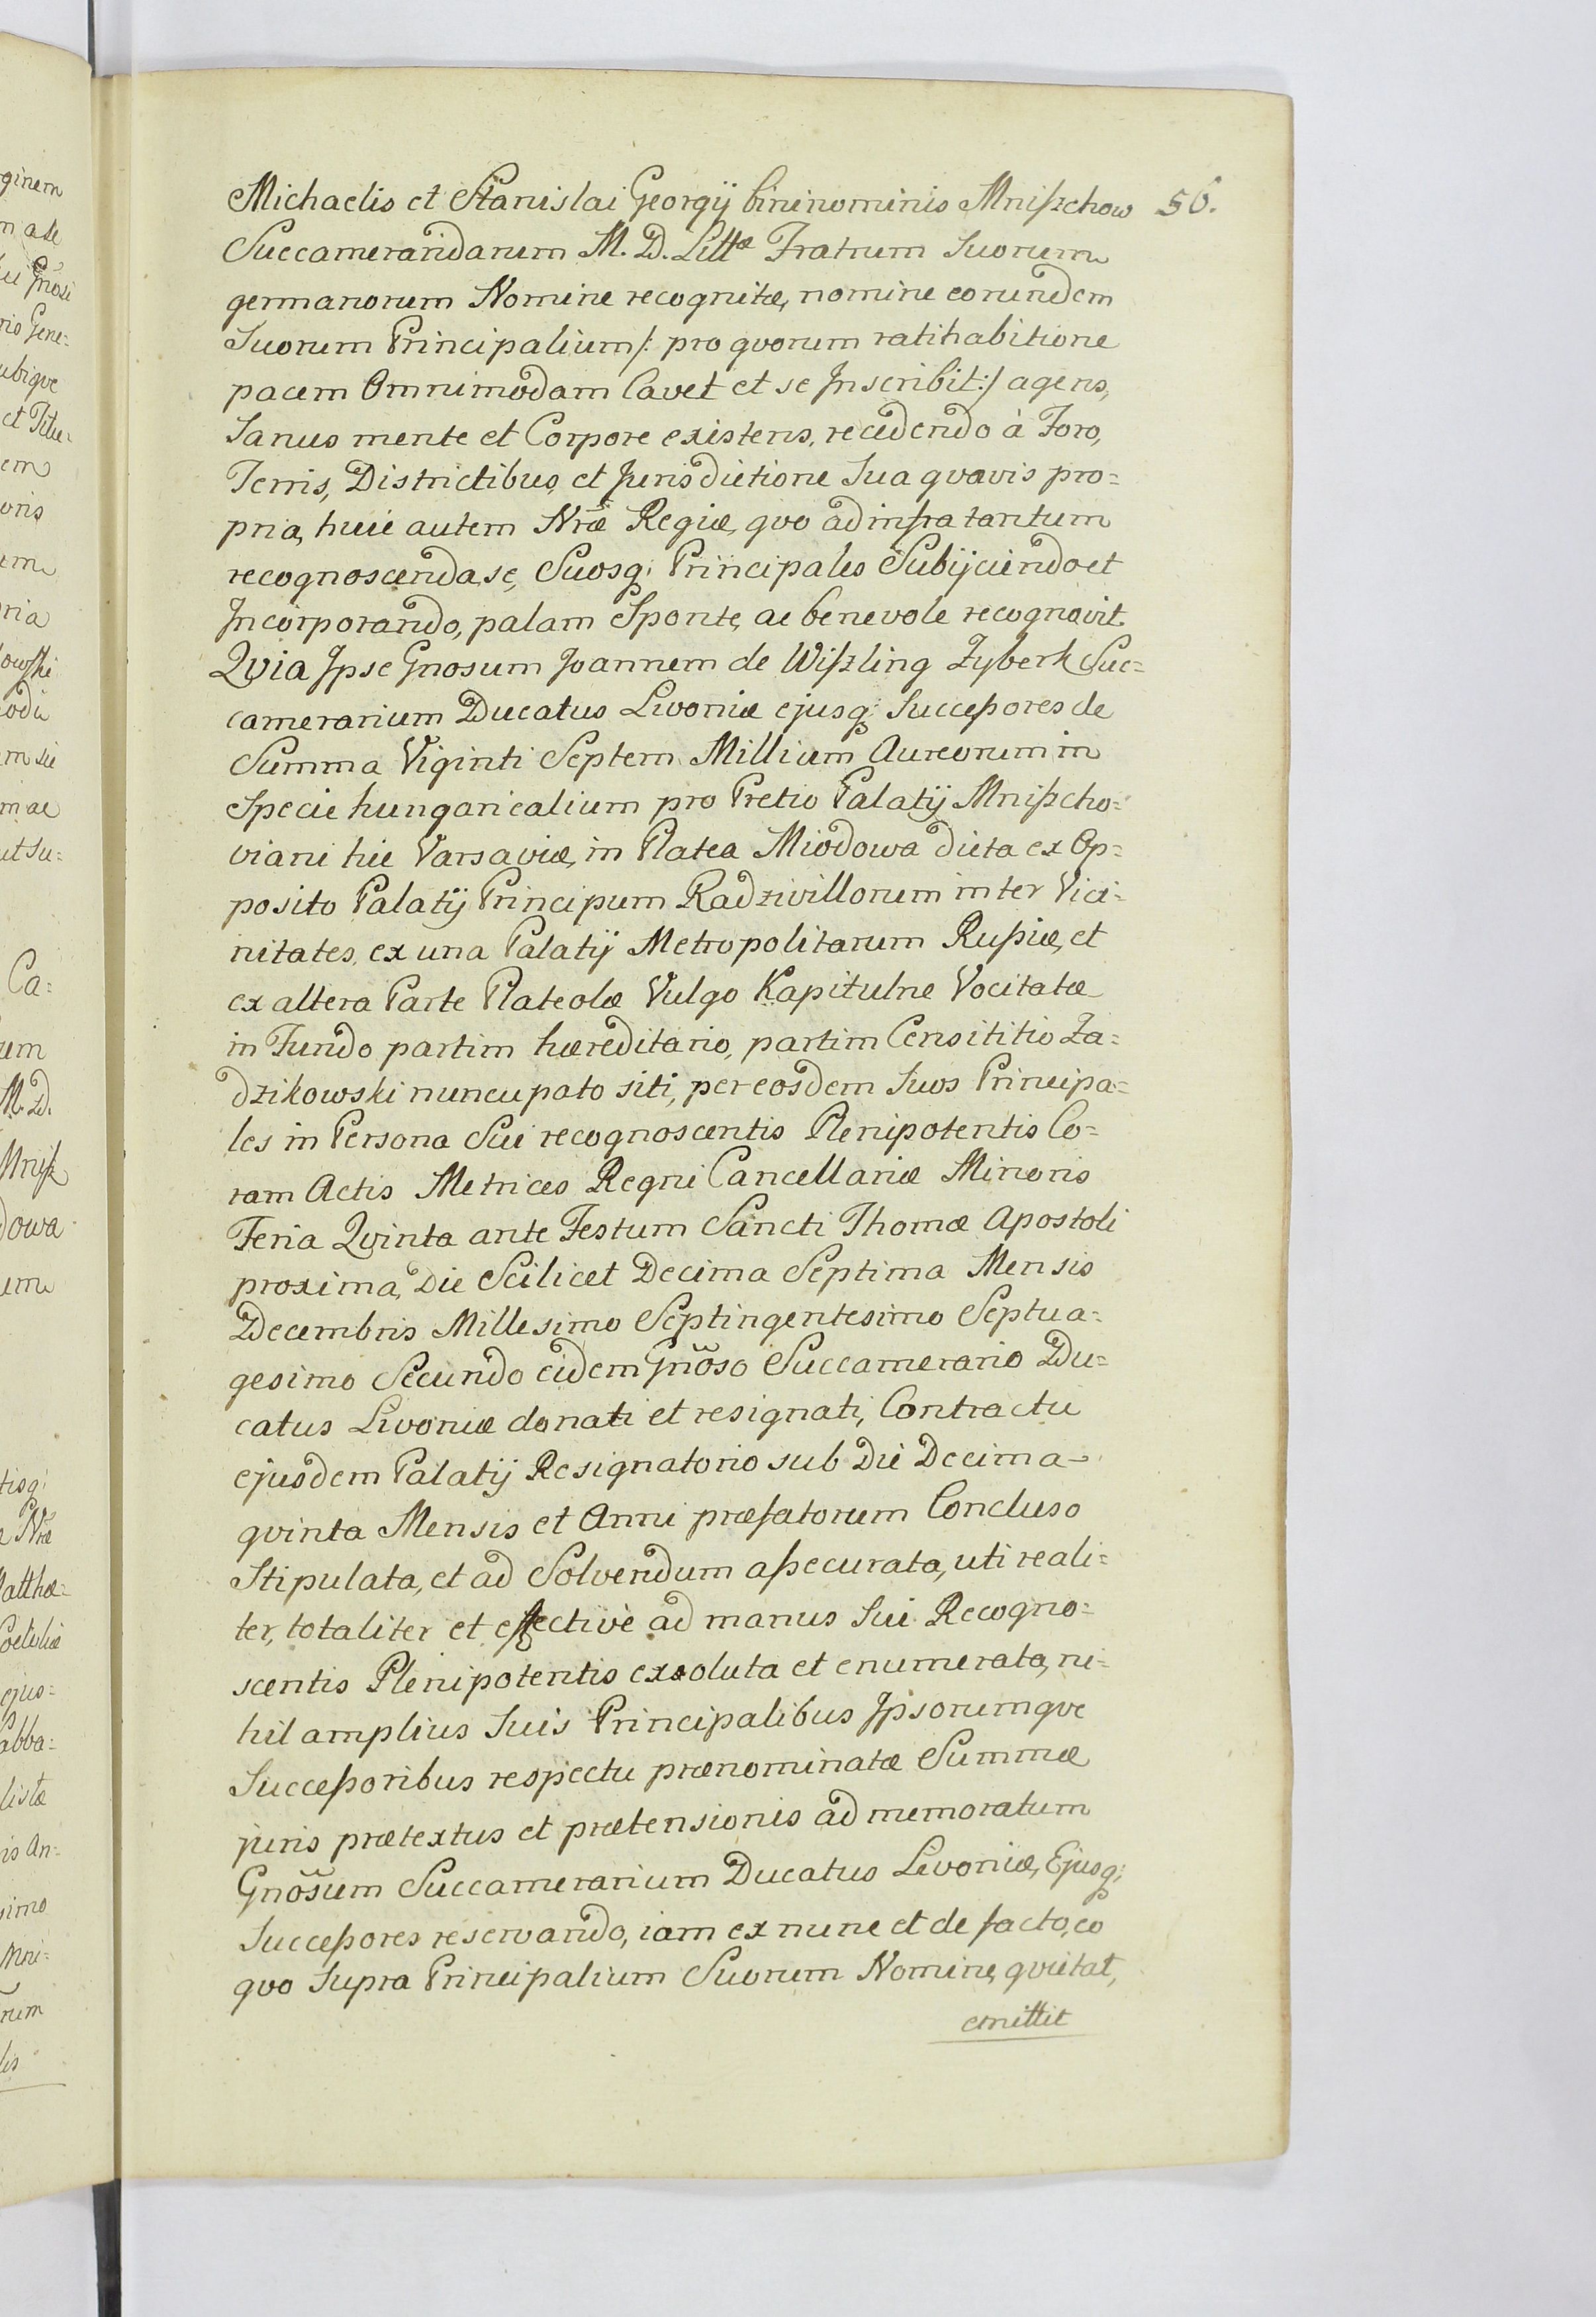 Michaelis et Stanislai Georgij binïnominis Mniſzchow 56.
Succamerandarum M. D. Littæ Fratrum Suorum
germanorum Nomine recognitæ, nomine eorundem
Suorum Principalium /: pro qvorum ratihabitione
pacem Omnimodam Cavet et se Jnscribit :/ agens,
Sanus mente et Corpore existens, recedendo à Foro,
Terris, Districtibus, et Jurisdictione Sua qvavis pro=
pria, huic autem Nræ Regiæ, qvo ad infra tantum
recognoscenda, se, Suosq; Principales Subijciendo et
Jncorporando, palam Sponte, ac benevole recognovit.
Qvia Jpse Gnosum Joannem de Wiſzling Zyberk Suc=
camerarium Ducatus Livoniæ ejusq; Succeſsores de
Summa Viginti Septem Millium Aureorum in
Specie hungaricalium pro Pretio Palatij Mniſzcho=
viani hic Varsaviæ, in Platea Miodowa dicta ex Op=
posito Palatij Principum Radzivillorum inter Vici=
nitates, ex una Palatij Metropolitarum Ruſsiæ, et
ex altera Parte Plateolæ Vulgo Kapitulne Vocitatæ
in Fundo partim hæreditario, partim Censititio Za=
dzikowski nuncupato siti, per eosdem Suos Principa=
les in Persona Sui recognoscentis Plenipotentis Co=
ram Actis Metrices Regni Cancellariæ Minoris
Feria Qvinta ante Festum Sancti Thomæ Apostoli
proxima, Die Scilicet Decima Septima Mensis
Decembris Millesimo Septingentesimo Septua=
gesimo Secundo eidem Gnõso Succamerario Du=
catus Livoniæ donati et resignati, Contractu
ejusdem Palatij Resignatorio sub Die Decima
qvinta Mensis et Anni præfatorum Concluso
Stipulata, et ad Solvendum aſsecurata, uti reali=
ter, totaliter et effectivè ad manus Sui Recogno=
scentis Plenipotentis exsoluta et enumerata, ni=
hil amplius Suis Principalibus Jpsorumqve
Succeſsoribus respectu prænominatæ Summæ
juris prætextus et prætensionis ad memoratum
Gnõsum Succamerarium Ducatus Livoniæ, Ejusq;
Succeſsores reservando, iam ex nunc et de facto, eo
qvo Supra Principalium Suorum Nomine, qvietat,
emittit